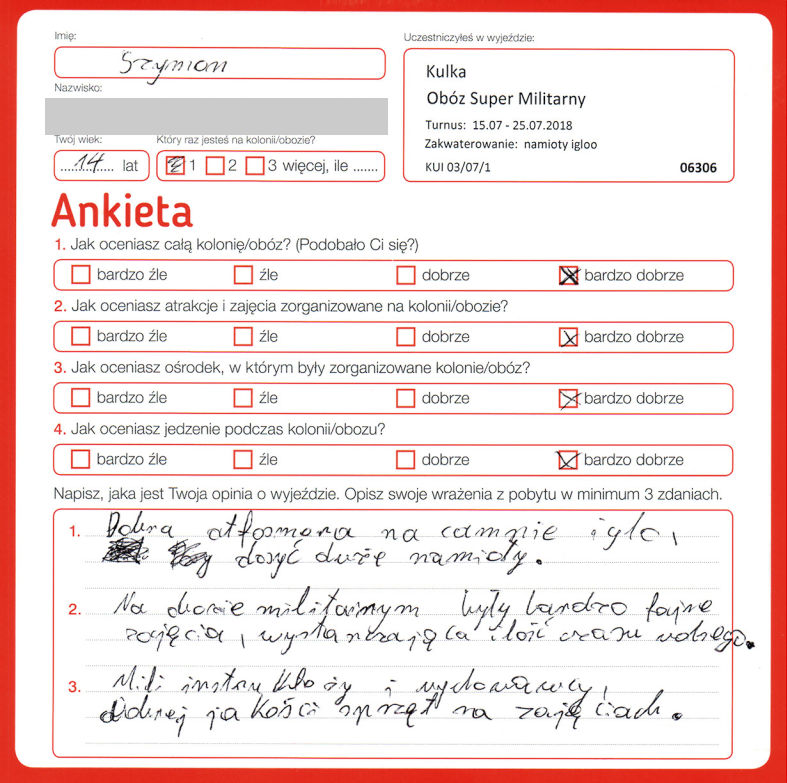 Imię:
Szymon
Nazwisko:
Twój wiek:
14 lat
Który raz jesteś na kolonii/obozie?
1 2 3 więcej, ile .......
Uczestniczyłeś w wyjeździe:
Kulka
Obóz Super Militarny
Turnus: 15.07 - 25.07.2018
Zakwaterowanie: namioty igloo
KUI 03/07/1 06306
Ankieta
1. Jak oceniasz całą kolonię/obóz? (Podobało Ci się?)
bardzo źle źle dobrze bardzo dobrze
2. Jak oceniasz atrakcje i zajęcia zorganizowane na kolonii/obozie?
bardzo źle źle dobrze bardzo dobrze
3. Jak oceniasz ośrodek, w którym były zorganizowane kolonie/obóz?
bardzo źle źle dobrze bardzo dobrze
4. Jak oceniasz jedzenie podczas kolonii/obozu?
bardzo źle źle dobrze bardzo dobrze
Napisz, jaka jest Twoja opinia o wyjeździe. Opisz swoje wrażenia z pobytu w minimum 3 zdaniach.
1. Dobra atfosmera na campie iglo,
dosyć duże namioty.
2. Na obozie militarnym były bardzo fajne
zajęcia, wystarczająca ilość czasu wolnego.
3. Mili instruktorzy i wychowawcy,
dobrej jakości sprzęt na zajęciach.